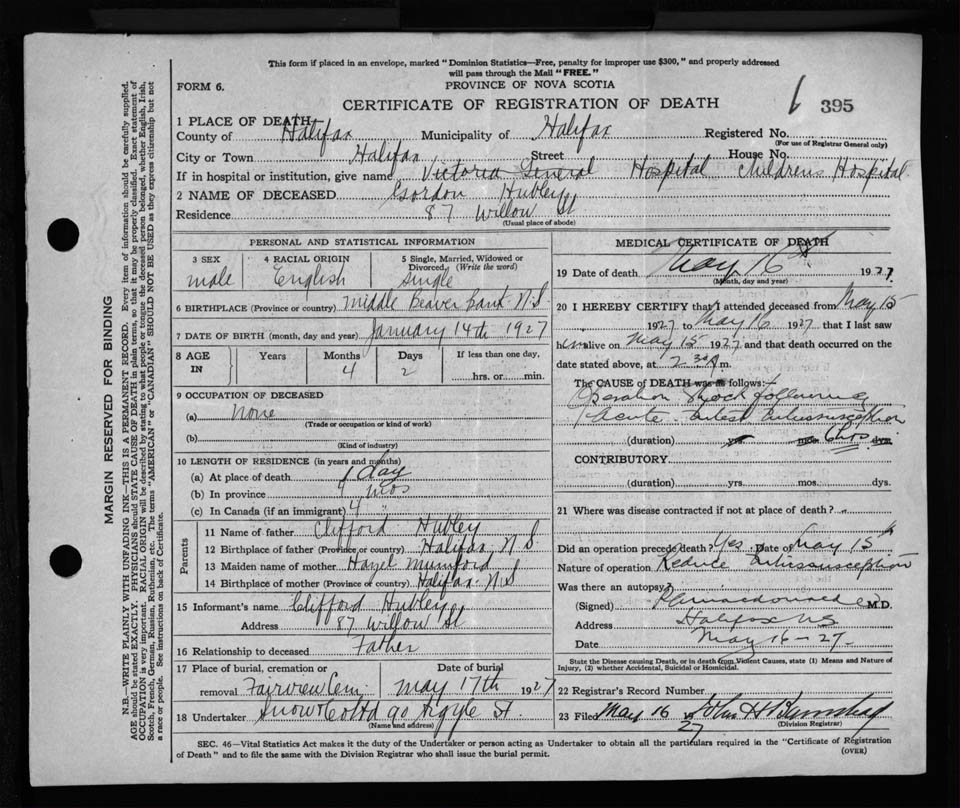 This form if placed in an envelope, marked "Dominion Statistics—Free, penalty for improper use $300," and properly addressed
will pass through the Mail "FREE."
FORM 6.
PROVINCE OF NOVA SCOTIA
CERTIFICATE OF REGISTRATION OF DEATH
6 395
1 PLACE OF DEATH
County of Halifax Municipality of Halifax Registered No.
(For use of Registrar General only)
City or Town Halifax Street House No.
If in hospital or institution, give name Victoria General Hospital Childrens Hospital
2 NAME OF DECEASED Gordon Hubley
Residence 87 Willow St
(Usual place of abode)
PERSONAL AND STATISTICAL INFORMATION
3 SEX 4 RACIAL ORIGIN 5 Single, Married, Widowed or Divorced, (Write the word)
male English Single
6 BIRTHPLACE (Province or country) Middle Beaver Bank N.S.
7 DATE OF BIRTH (month, day and year) January 14th 1927
8 AGE IN Years Months Days If less than one day,
4 2 hrs. or min.
9 OCCUPATION OF DECEASED
(a) None
(Trade or occupation or kind of work)
(b)
(Kind of industry)
10 LENGTH OF RESIDENCE (in years and months)
(a) At place of death 1 day
(b) In province 4 mos
(c) In Canada (if an immigrant) 4 "
Parents
11 Name of father Clifford Hubley
12 Birthplace of father (Province or country) Halifax N.S
13 Maiden name of mother Hazel Mumford
14 Birthplace of mother (Province or country) Halifax N.S
15 Informant's name Clifford Hubley
Address 87 Willow St
16 Relationship to deceased Father
17 Place of burial, cremation or removal Date of burial
Fairview Cem May 17th 1927
18 Undertaker Snow & Co Ltd 90 Argyle St.
(Name and address)
MEDICAL CERTIFICATE OF DEATH
19 Date of death May 16th 1927
(Month, day and year)
20 I HEREBY CERTIFY that I attended deceased from May 15
1927 to May 16 1927 that I last saw
him alive on May 15 1927 and that death occurred on the
date stated above, at 2 30 A m.
The CAUSE of DEATH was as follows:
Operation Shock following
acute intussusception
(duration) yrs. mos. 6 hrs dys.
CONTRIBUTORY
(duration) yrs. mos. dys.
21 Where was disease contracted if not at place of death?
Did an operation precede death? Yes Date of May 15th
Nature of operation Reduce intussusception
Was there an autopsy?
(Signed) M.D.
Address Halifax NS
Date May 16-27-
State the Disease causing Death, or in death from Violent Causes, state (1) Means and Nature of
Injury, (2) whether Accidental, Suicidal or Homicidal.
22 Registrar's Record Number
23 Filed May 16 27 John H
(Division Registrar)
SEC. 46—Vital Statistics Act makes it the duty of the Undertaker or person acting as Undertaker to obtain all the particulars required in the "Certificate of Registration
of Death" and to file the same with the Division Registrar who shall issue the burial permit.
(OVER)
MARGIN RESERVED FOR BINDING
N.B.—WRITE PLAINLY WITH UNFADING INK—THIS IS A PERMANENT RECORD. Every item of information should be carefully supplied.
AGE should be stated EXACTLY. PHYSICIANS should STATE CAUSE OF DEATH in plain terms, so that it may be properly classified. Exact statement of
OCCUPATION is very important. RACIAL ORIGIN will be described by stating to what people or tongue the deceased person belonged, whether English, Irish,
Scotch, French, German, Russian, Ruthenian, etc. The terms "AMERICAN" or "CANADIAN" SHOULD NOT BE USED as they express citizenship but not
a race or people. See instructions on back of Certificate.